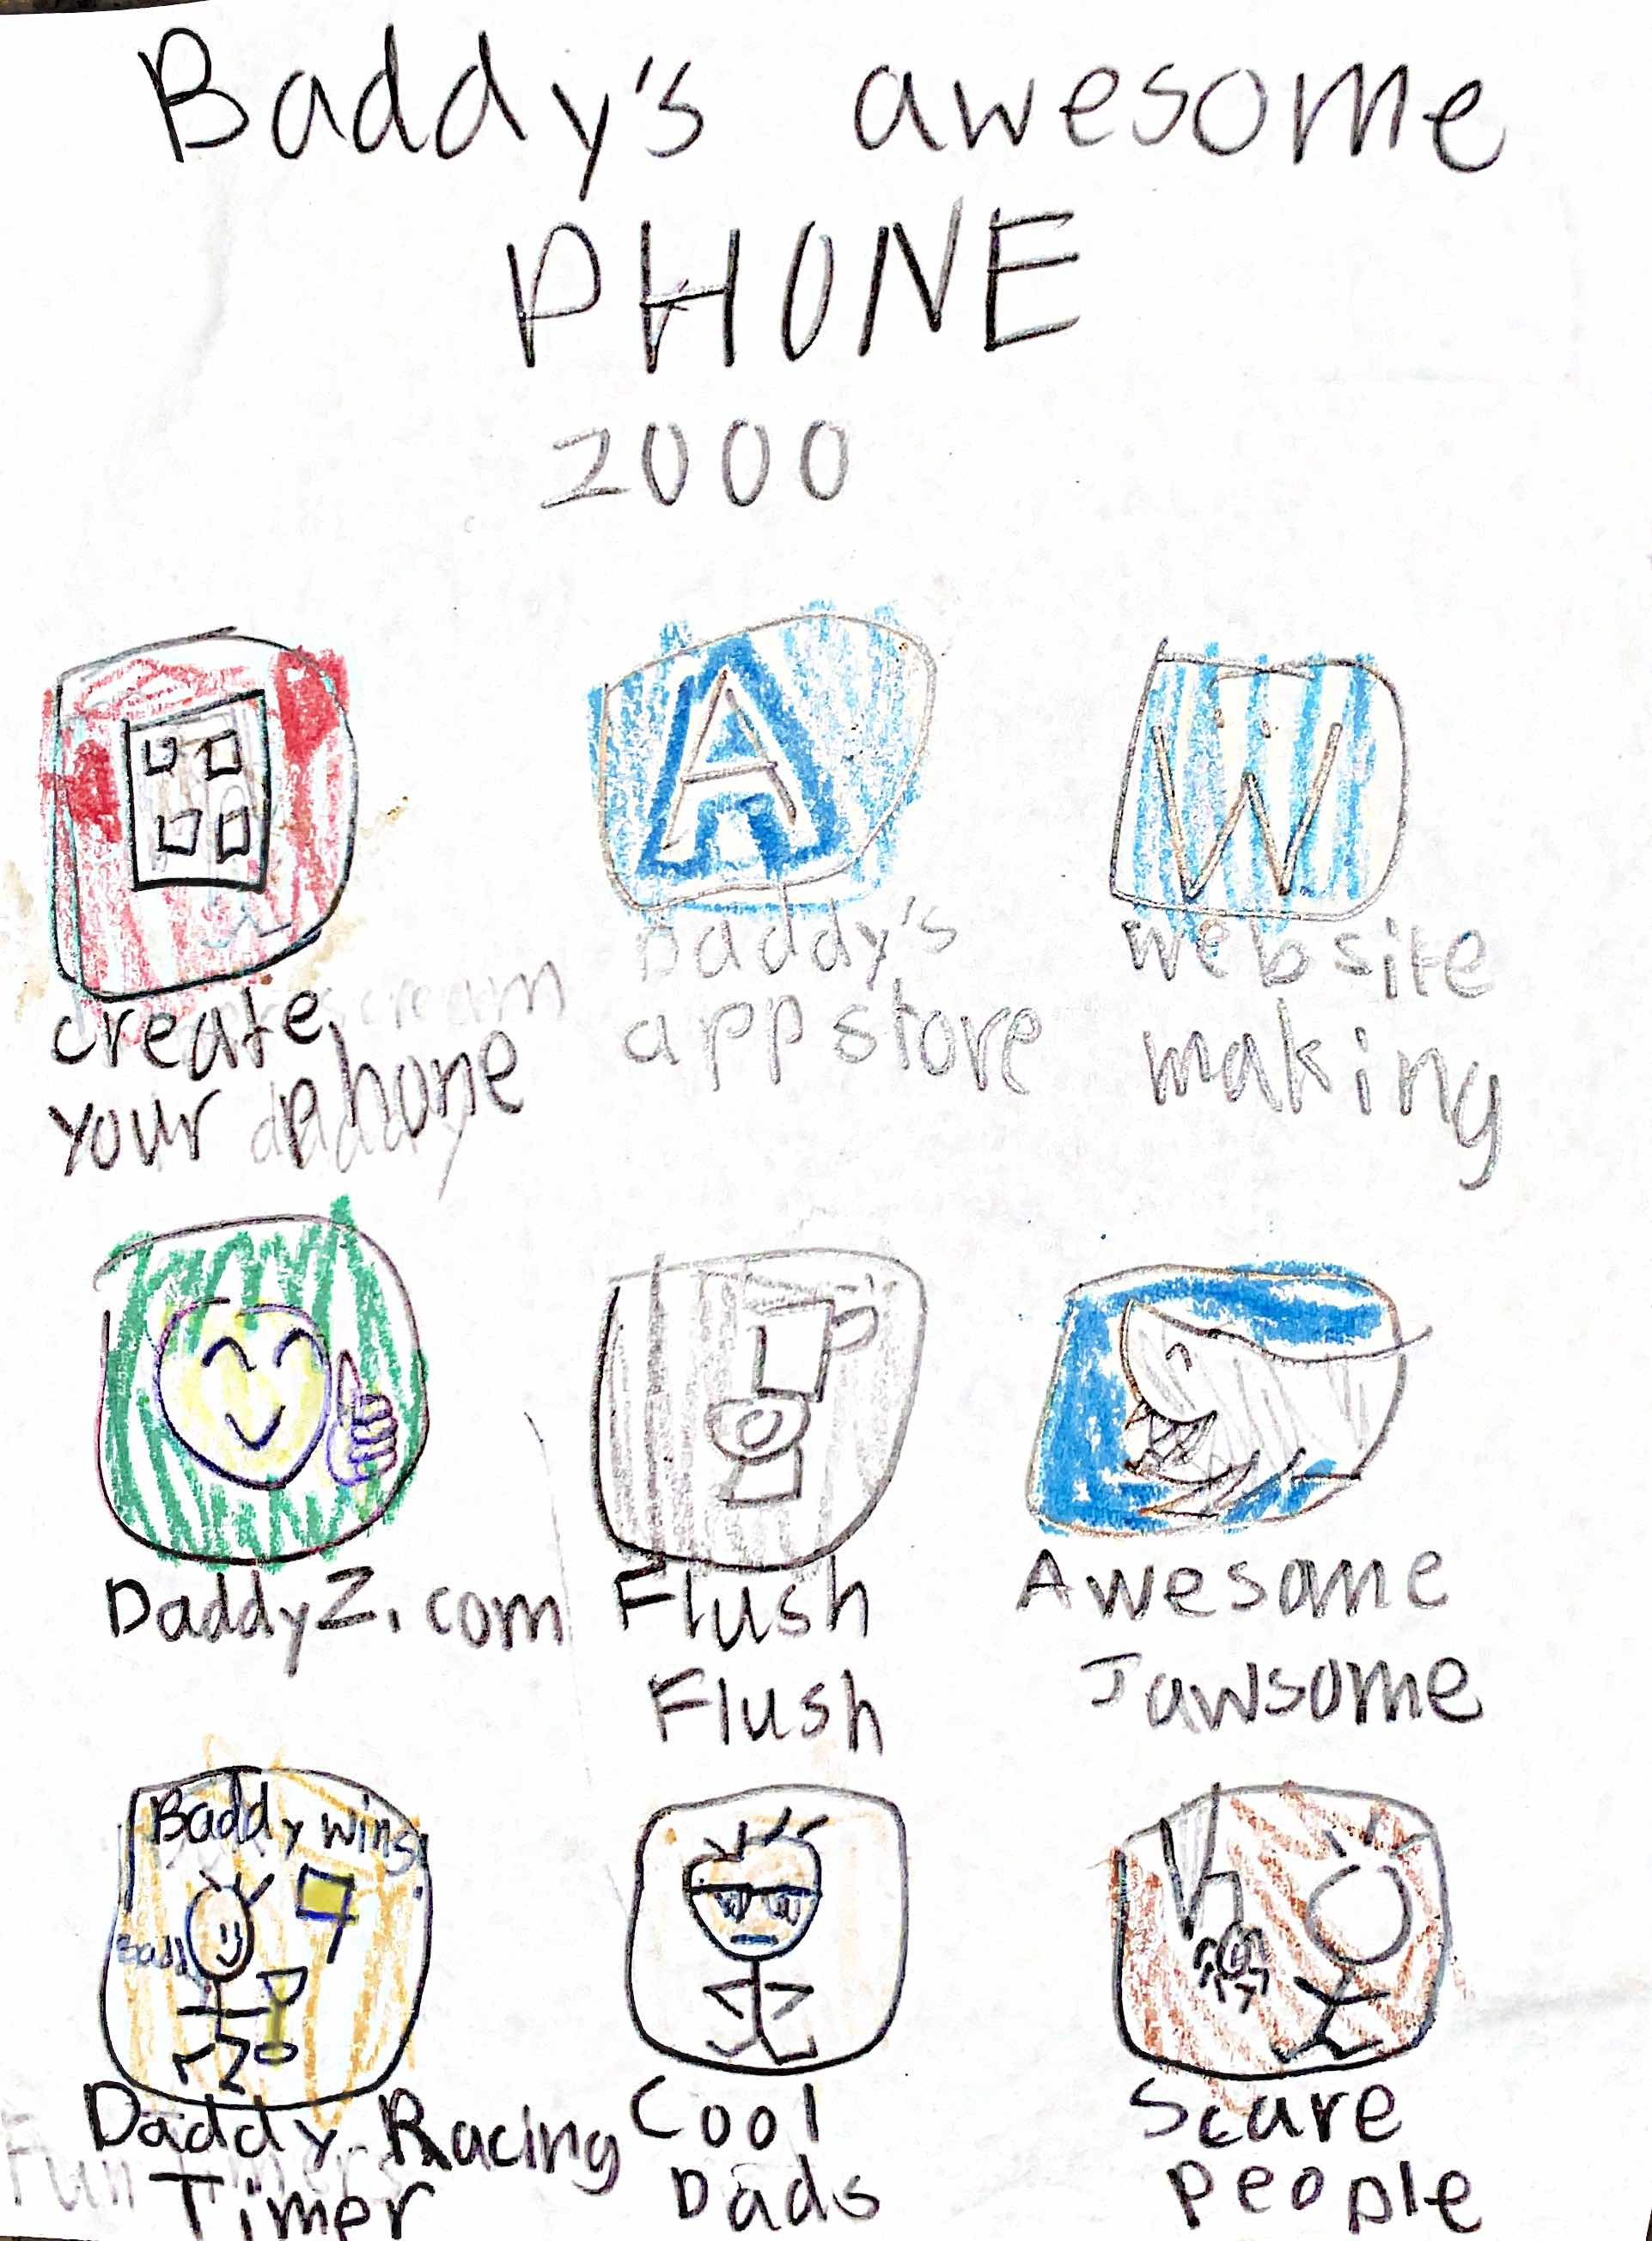 Baddy's awesome
PHONE
2000
A
W
create
your phone
Daddy's
appstore
website
making
DaddyZ.com
Flush
Flush
Awesome
Jawsome
Baddy wins!
Badd
Daddy Racing
Timer
Cool
Dads
Scare
People